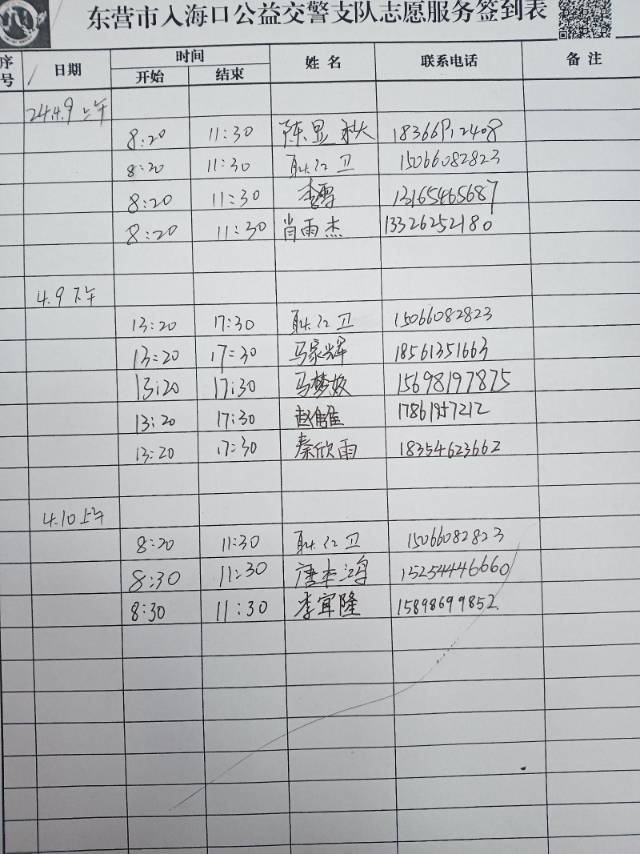 东营市入海口公益交警支队志愿服务签到表
序号 日期 时间 姓名 联系电话 备注
开始 结束
24.4.9上午
8:20 11:30 陈显秋 18366912408
8:20 11:30 耿仁卫 15066082823
8:20 11:30 李雪 13165465687
8:20 11:30 肖雨杰 13326252180
4.9下午
13:20 17:30 耿仁卫 15066082823
13:20 17:30 马家辉 18561351663
13:20 17:30 马梦姣 15698197875
13:20 17:30 赵雔 17861957212
13:20 17:30 秦欣雨 18354623662
4.10上午
8:20 11:30 耿仁卫 15066082823
8:30 11:30 唐李鸿 15254446660
8:30 11:30 李宜隆 15898699852